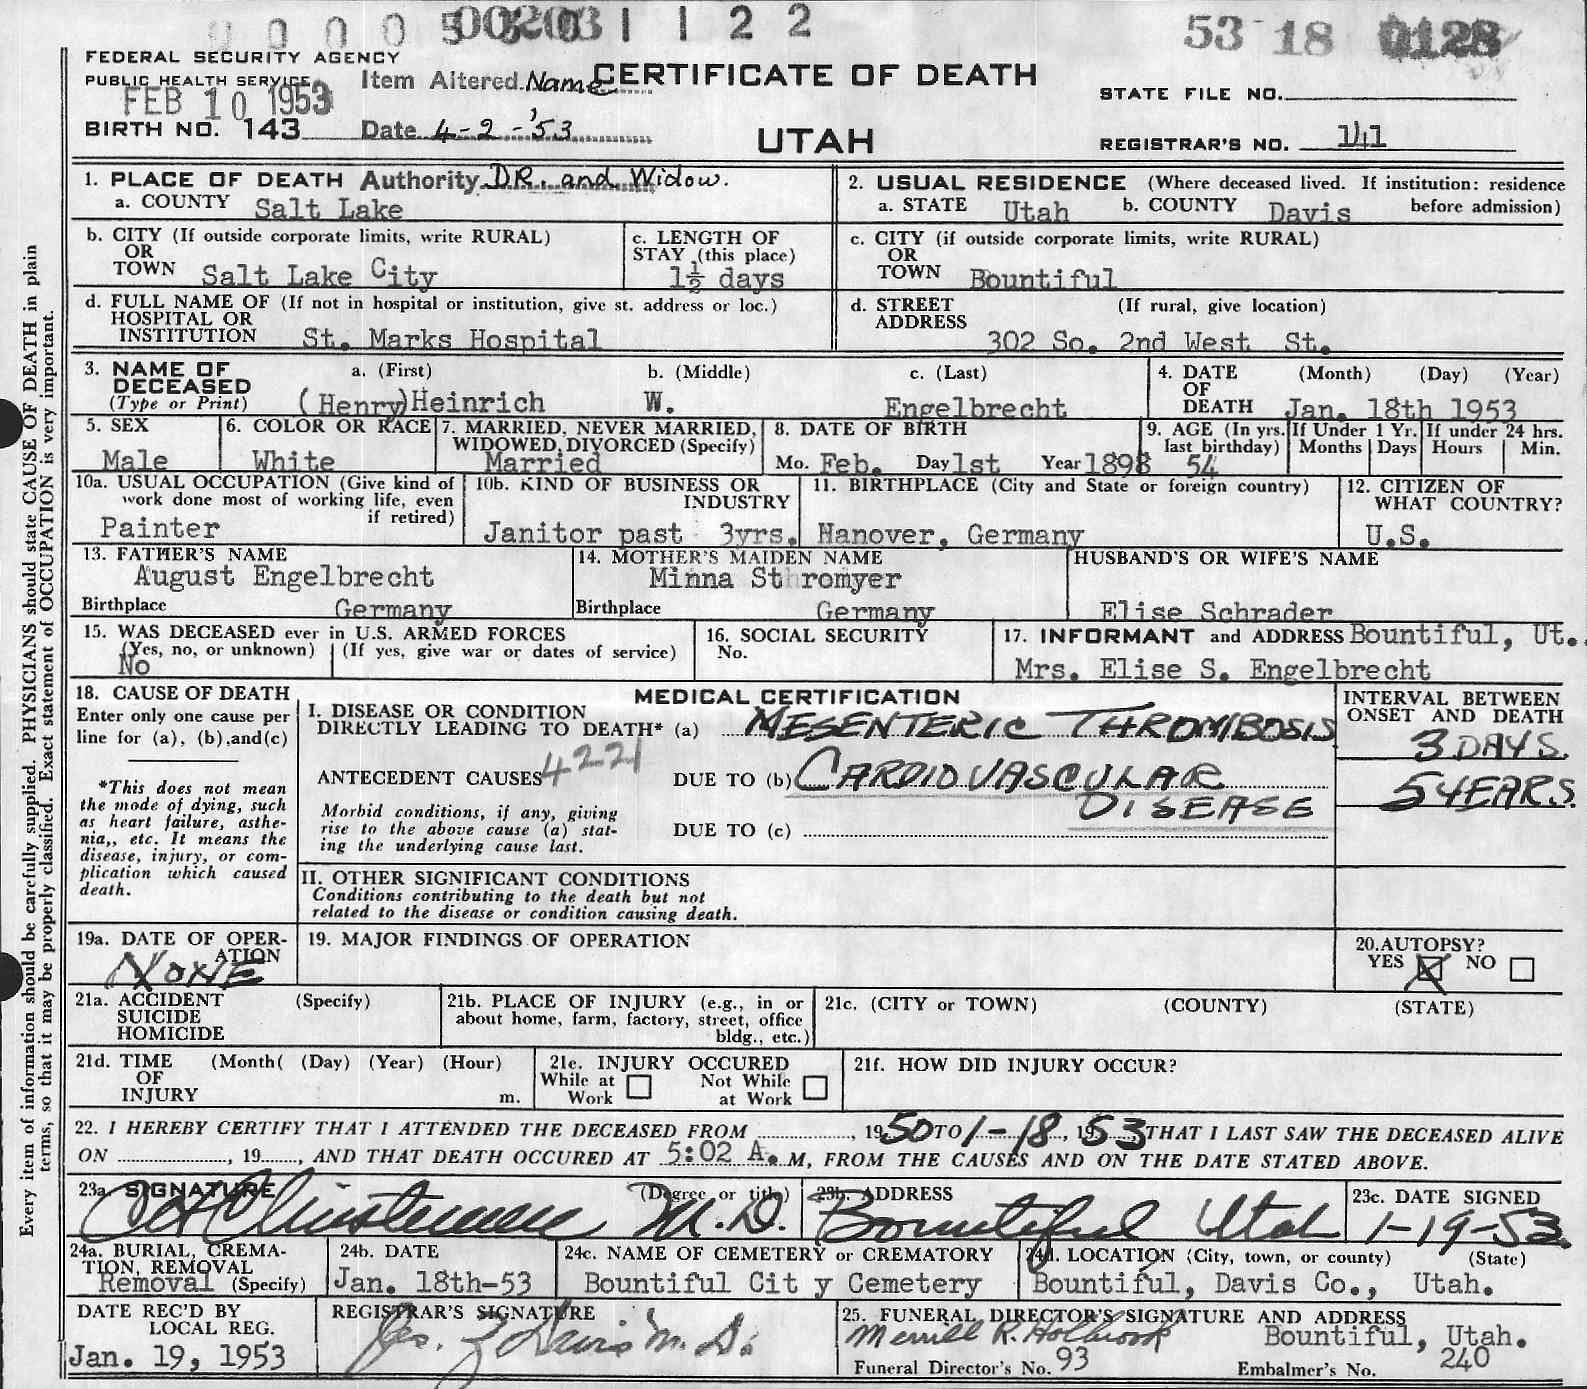 53 18 0128
FEDERAL SECURITY AGENCY
PUBLIC HEALTH SERVICE
FEB 10 1953
BIRTH NO. 143
Item Altered Name
Date 4-2-'53
CERTIFICATE OF DEATH
UTAH
STATE FILE NO.
REGISTRAR'S NO. 141
1. PLACE OF DEATH Authority D.R. and Widow.
a. COUNTY Salt Lake
2. USUAL RESIDENCE (Where deceased lived. If institution: residence before admission)
a. STATE Utah b. COUNTY Davis
b. CITY (If outside corporate limits, write RURAL)
OR
TOWN Salt Lake City
c. LENGTH OF
STAY (this place)
1½ days
c. CITY (if outside corporate limits, write RURAL)
OR
TOWN Bountiful
d. FULL NAME OF (If not in hospital or institution, give st. address or loc.)
HOSPITAL OR
INSTITUTION St. Marks Hospital
d. STREET (If rural, give location)
ADDRESS 302 So. 2nd West St.
3. NAME OF
DECEASED
(Type or Print)
a. (First) b. (Middle) c. (Last)
(Henry) Heinrich W. Engelbrecht
4. DATE (Month) (Day) (Year)
OF
DEATH Jan. 18th 1953
5. SEX
Male
6. COLOR OR RACE
White
7. MARRIED, NEVER MARRIED,
WIDOWED, DIVORCED (Specify)
Married
8. DATE OF BIRTH
Mo. Feb. Day 1st Year 1898
9. AGE (In yrs. last birthday)
54
If Under 1 Yr.
Months Days
If under 24 hrs.
Hours Min.
10a. USUAL OCCUPATION (Give kind of
work done most of working life, even
if retired)
Painter
10b. KIND OF BUSINESS OR
INDUSTRY
Janitor past 3yrs.
11. BIRTHPLACE (City and State or foreign country)
Hanover, Germany
12. CITIZEN OF
WHAT COUNTRY?
U.S.
13. FATHER'S NAME
August Engelbrecht
Birthplace Germany
14. MOTHER'S MAIDEN NAME
Minna St romyer
Birthplace Germany
HUSBAND'S OR WIFE'S NAME
Elise Schrader
15. WAS DECEASED ever in U.S. ARMED FORCES
(Yes, no, or unknown) (If yes, give war or dates of service)
No
16. SOCIAL SECURITY
No.
17. INFORMANT and ADDRESS Bountiful, Ut.
Mrs. Elise S. Engelbrecht
18. CAUSE OF DEATH
Enter only one cause per
line for (a), (b), and (c)
*This does not mean
the mode of dying, such
as heart failure, asthe-
nia,, etc. It means the
disease, injury, or com-
plication which caused
death.
MEDICAL CERTIFICATION
I. DISEASE OR CONDITION
DIRECTLY LEADING TO DEATH* (a) MESENTERIC THROMBOSIS
ANTECEDENT CAUSES 4221 DUE TO (b) CARDIOVASCULAR
DISEASE
Morbid conditions, if any, giving
rise to the above cause (a) stat-
ing the underlying cause last.
DUE TO (c)
INTERVAL BETWEEN
ONSET AND DEATH
3 DAYS.
5 YEARS.
II. OTHER SIGNIFICANT CONDITIONS
Conditions contributing to the death but not
related to the disease or condition causing death.
19a. DATE OF OPER-
ATION
NONE
19. MAJOR FINDINGS OF OPERATION
20. AUTOPSY?
YES NO
21a. ACCIDENT (Specify)
SUICIDE
HOMICIDE
21b. PLACE OF INJURY (e.g., in or
about home, farm, factory, street, office
bldg., etc.)
21c. (CITY or TOWN) (COUNTY) (STATE)
21d. TIME (Month( (Day) (Year) (Hour)
OF
INJURY m.
21e. INJURY OCCURED
While at Work Not While at Work
21f. HOW DID INJURY OCCUR?
22. I HEREBY CERTIFY THAT I ATTENDED THE DECEASED FROM , 1950 TO 1-18, 1953, THAT I LAST SAW THE DECEASED ALIVE
ON , 19 , AND THAT DEATH OCCURED AT 5:02 A. M, FROM THE CAUSES AND ON THE DATE STATED ABOVE.
23a. SIGNATURE (Degree or title)
M.D.
23b. ADDRESS
Bountiful Utah
23c. DATE SIGNED
1-19-53.
24a. BURIAL, CREMA-
TION, REMOVAL
Removal (Specify)
24b. DATE
Jan. 18th-53
24c. NAME OF CEMETERY or CREMATORY
Bountiful Cit y Cemetery
24d. LOCATION (City, town, or county) (State)
Bountiful, Davis Co., Utah.
DATE REC'D BY
LOCAL REG.
Jan. 19, 1953
REGISTRAR'S SIGNATURE
Davis M.D.
25. FUNERAL DIRECTOR'S SIGNATURE AND ADDRESS
Merrill R. Holbrook Bountiful, Utah.
Funeral Director's No. 93 Embalmer's No. 240
Every item of information should be carefully supplied. PHYSICIANS should state CAUSE OF DEATH in plain
terms, so that it may be properly classified. Exact statement of OCCUPATION is very important.